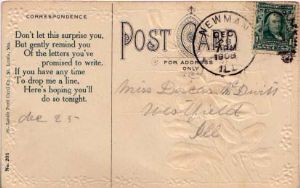 CORRESPONDENCE
Don't let this surprise you,
But gently remind you
Of the letters you've
promised to write.
If you have time
To drop me a line,
Here's hoping you'll
do so tonight.
Dec 25
No. 205
POST CARD
FOR ADDRESS
ONLY
NEWMAN
DEC
1908
ILL.
Miss
Westfield
Ill